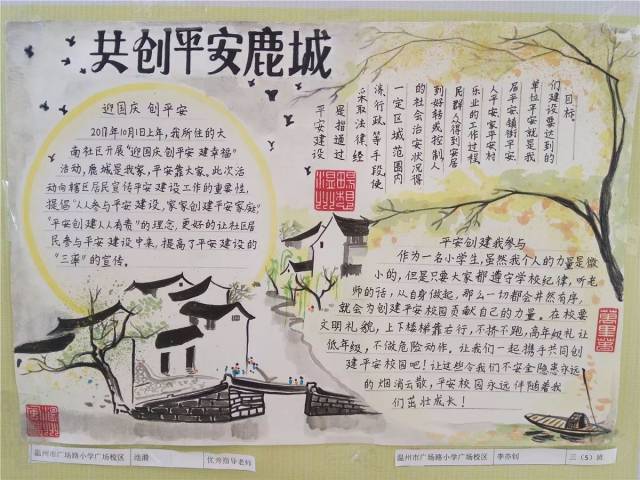 共创平安鹿城
迎国庆 创平安
2017年10月1日上午,我所住的大
南社区开展“迎国庆 创平安 建幸福”
活动,鹿城是我家,平安靠大家。此次活
动向辖区居民宣传平安建设工作的重要性,
提倡“人人参与平安建设,家家创建平安家庭”
“平安创建人人有责”的理念,更好的让社区居
民参与平安建设中来,提高了平安建设的
“三率”的宣传。
目标:
们建设要达到的
单位平安就是我
居平安镇街平安
人平安家平安村
乐业的工作过程
民群众得到安居
到好转或控制,人
的社会治安状况得
一定区域范围内
济,行政等手段使
采取法律经
是指通过
平安建设
平安创建我参与
作为一名小学生,虽然我个人的力量是微
小的,但是只要大家都遵守学校纪律,听老
师的话,从自身做起,那么一切都会井然有序,
就会为创建平安校园贡献自己的力量。在校要
文明礼貌,上下楼梯靠右行,不挤不跑,高年级礼让
低年级,不做危险动作。让我们一起携手共同创
建平安校园吧!让这些令我们不安全隐患永远
的烟消云散,平安校园永远伴随着我
们茁壮成长!
温州市广场路小学广场校区
优秀指导老师
温州市广场路小学广场校区 李亦钊 三(5)班